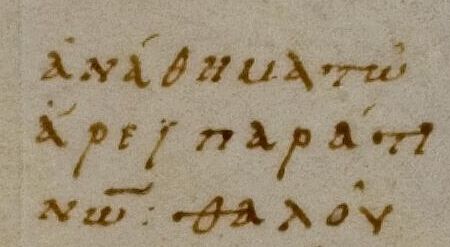 ἀνάθημα τῶ
ἄρεϊ παρά τι
νω̅ : θαλοῦ